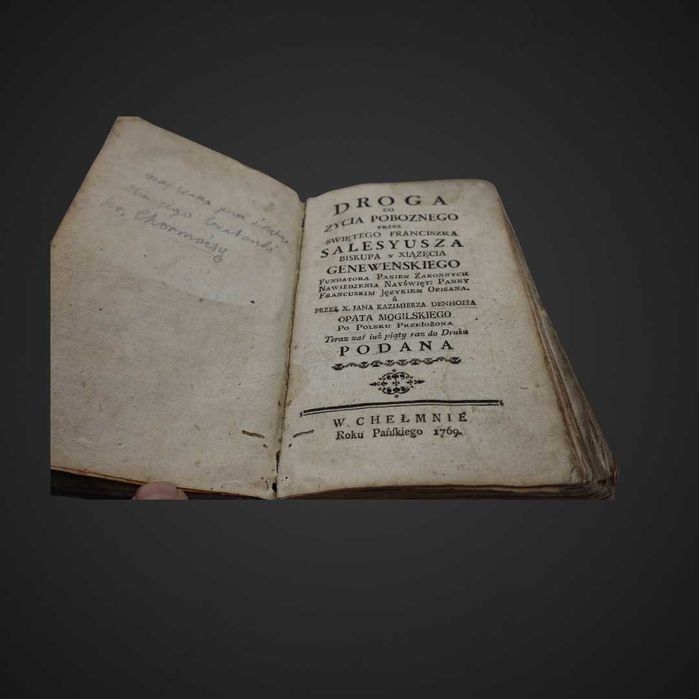 DROGA
DO
ZYCIA POBOZNEGO
PRZEZ
SWIĘTEGO FRANCISZKA
SALESYUSZA
BISKUPA y XIĄZĘCIA
GENEWENSKIEGO
FUNDATORA PANIEN ZAKONNYCH
NAWIEDZENIA NAYSWIĘT: PANNY
FRANCUSKIM JĘZYKIEM OPISANA.
á
PRZEZ X. JANA KAZIMIERZA DENHOFFA
OPATA MOGILSKIEGO
PO POLSKU PRZEŁOZONA
Teraz zaś iuż piąty raz do Druku
PODANA
W. CHEŁMNIE
Roku Pańskiego 1769.